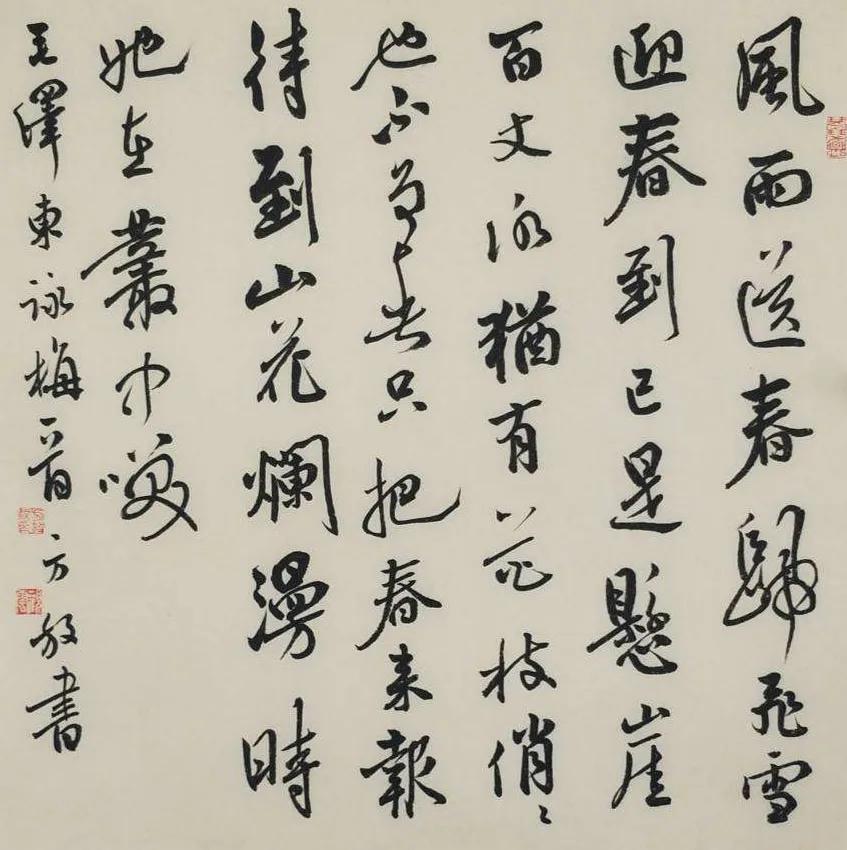 風雨送春歸飛雪
迎春到已是懸崖
百丈冰猶有花枝俏〻
也不爭春只把春来報
待到山花爛漫時
她在叢中咲
毛澤東詠梅一首 方 書